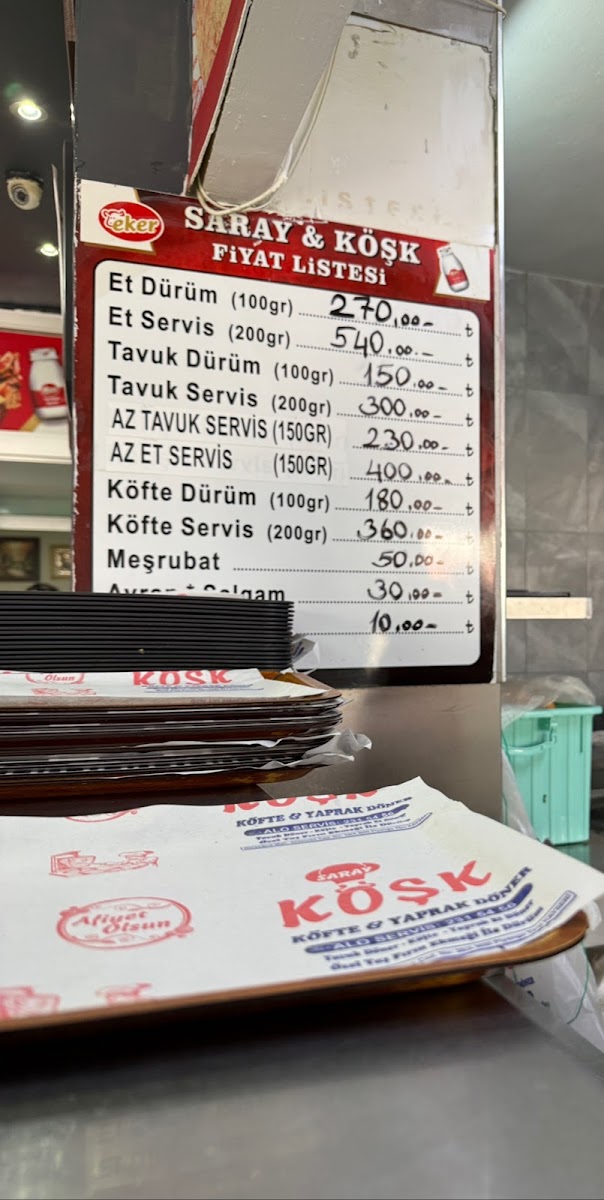 eker
SARAY & KÖŞK
FİYAT LİSTESİ
Et Dürüm (100gr) 270,00- ₺
Et Servis (200gr) 540,00.- ₺
Tavuk Dürüm (100gr) 150,00- ₺
Tavuk Servis (200gr) 300,00- ₺
AZ TAVUK SERVİS (150GR) 230,00- ₺
AZ ET SERVİS (150GR) 400,00- ₺
Köfte Dürüm (100gr) 180,00- ₺
Köfte Servis (200gr) 360,00- ₺
Meşrubat 50,00- ₺
Şalgam 30,00- ₺
10,00- ₺
Olsun
KÖŞK
KÖŞK
KÖFTE & YAPRAK DÖNER
ALO SERVİS: 231 54 50
SARAY
KÖŞK
KÖFTE & YAPRAK DÖNER
ALO SERVİS: 231 54 50
Tavuk Döner - Köfte - Yaprak Et Döner
Özel Taş Fırın Ekmeği İle Dürüm
Afiyet
Olsun